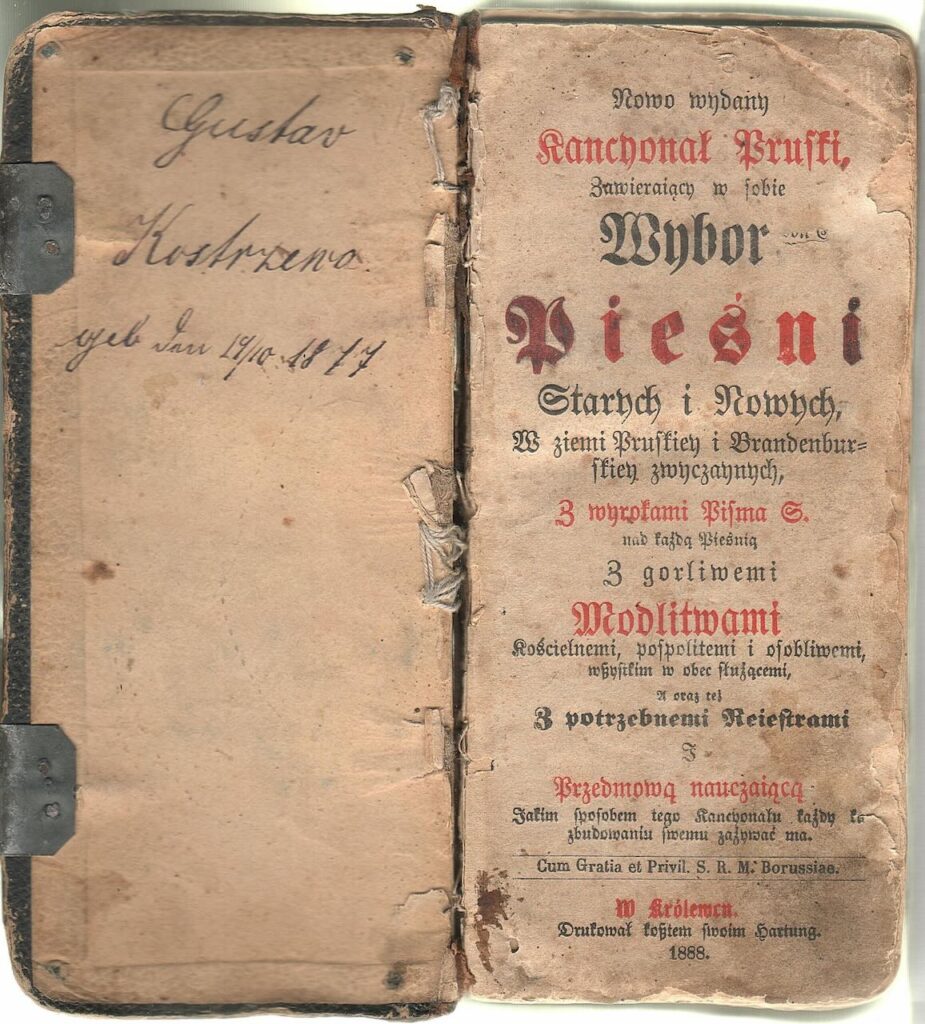 Gustav
Kostrzewa
geb den 19/10. 1877
Nowo wydany
Kancyonał Pruſki,
Zawieraiący w ſobie
Wybor
Pieśni
Starych i Nowych,
W ziemi Pruſkiey i Brandenbur⸗
ſkiey zwyczaynych,
Z wyrokami Piſma S.
nad każdą Pieśnią
Z gorliwemi
Modlitwami
Kościelnemi, poſpolitemi i oſobliwemi,
wßyſtkim w obec ſłużącemi,
A oraz też
Z potrzebnemi Reieſtrami
I
Przedmową nauczaiącą
Jakim ſpoſobem tego Kancyonału każdy ku
zbudowaniu ſwemu zażywać ma.
Cum Gratia et Privil. S. R. M. Borussiae.
W Królewcu.
Drukował koßtem ſwoim Hartung.
1888.